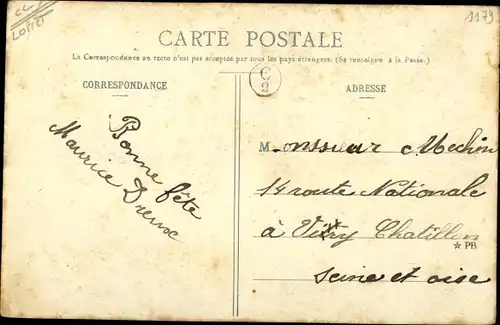 CC
LOIRET
1179
CARTE POSTALE
La Correspondance au recto n'est pas acceptée par tous les pays étrangers. (Se renseigner à la Poste.)
CORRESPONDANCE
ADRESSE
Bonne fête
Maurice Dreux
Monsieur Mechin
14 route Nationale
à Viry Chatillon
★ PB
Seine et oise